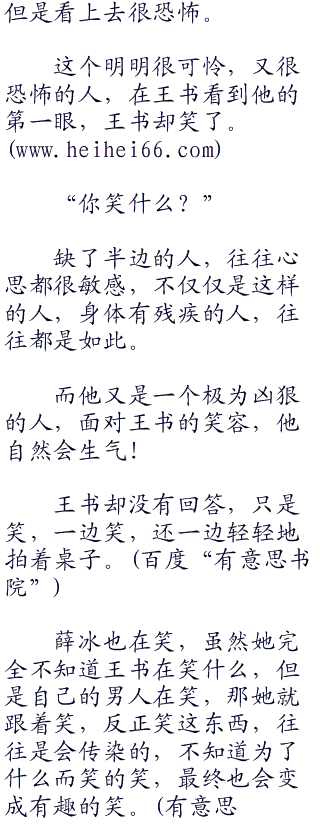 但是看上去很恐怖。
这个明明很可怜，又很
恐怖的人，在王书看到他的
第一眼，王书却笑了。
(www.heihei66.com)
“你笑什么？”
缺了半边的人，往往心
思都很敏感，不仅仅是这样
的人，身体有残疾的人，往
往都是如此。
而他又是一个极为凶狠
的人，面对王书的笑容，他
自然会生气！
王书却没有回答，只是
笑，一边笑，还一边轻轻地
拍着桌子。(百度“有意思书
院”)
薛冰也在笑，虽然她完
全不知道王书在笑什么，但
是自己的男人在笑，那她就
跟着笑，反正笑这东西，往
往是会传染的，不知道为了
什么而笑的笑，最终也会变
成有趣的笑。(有意思